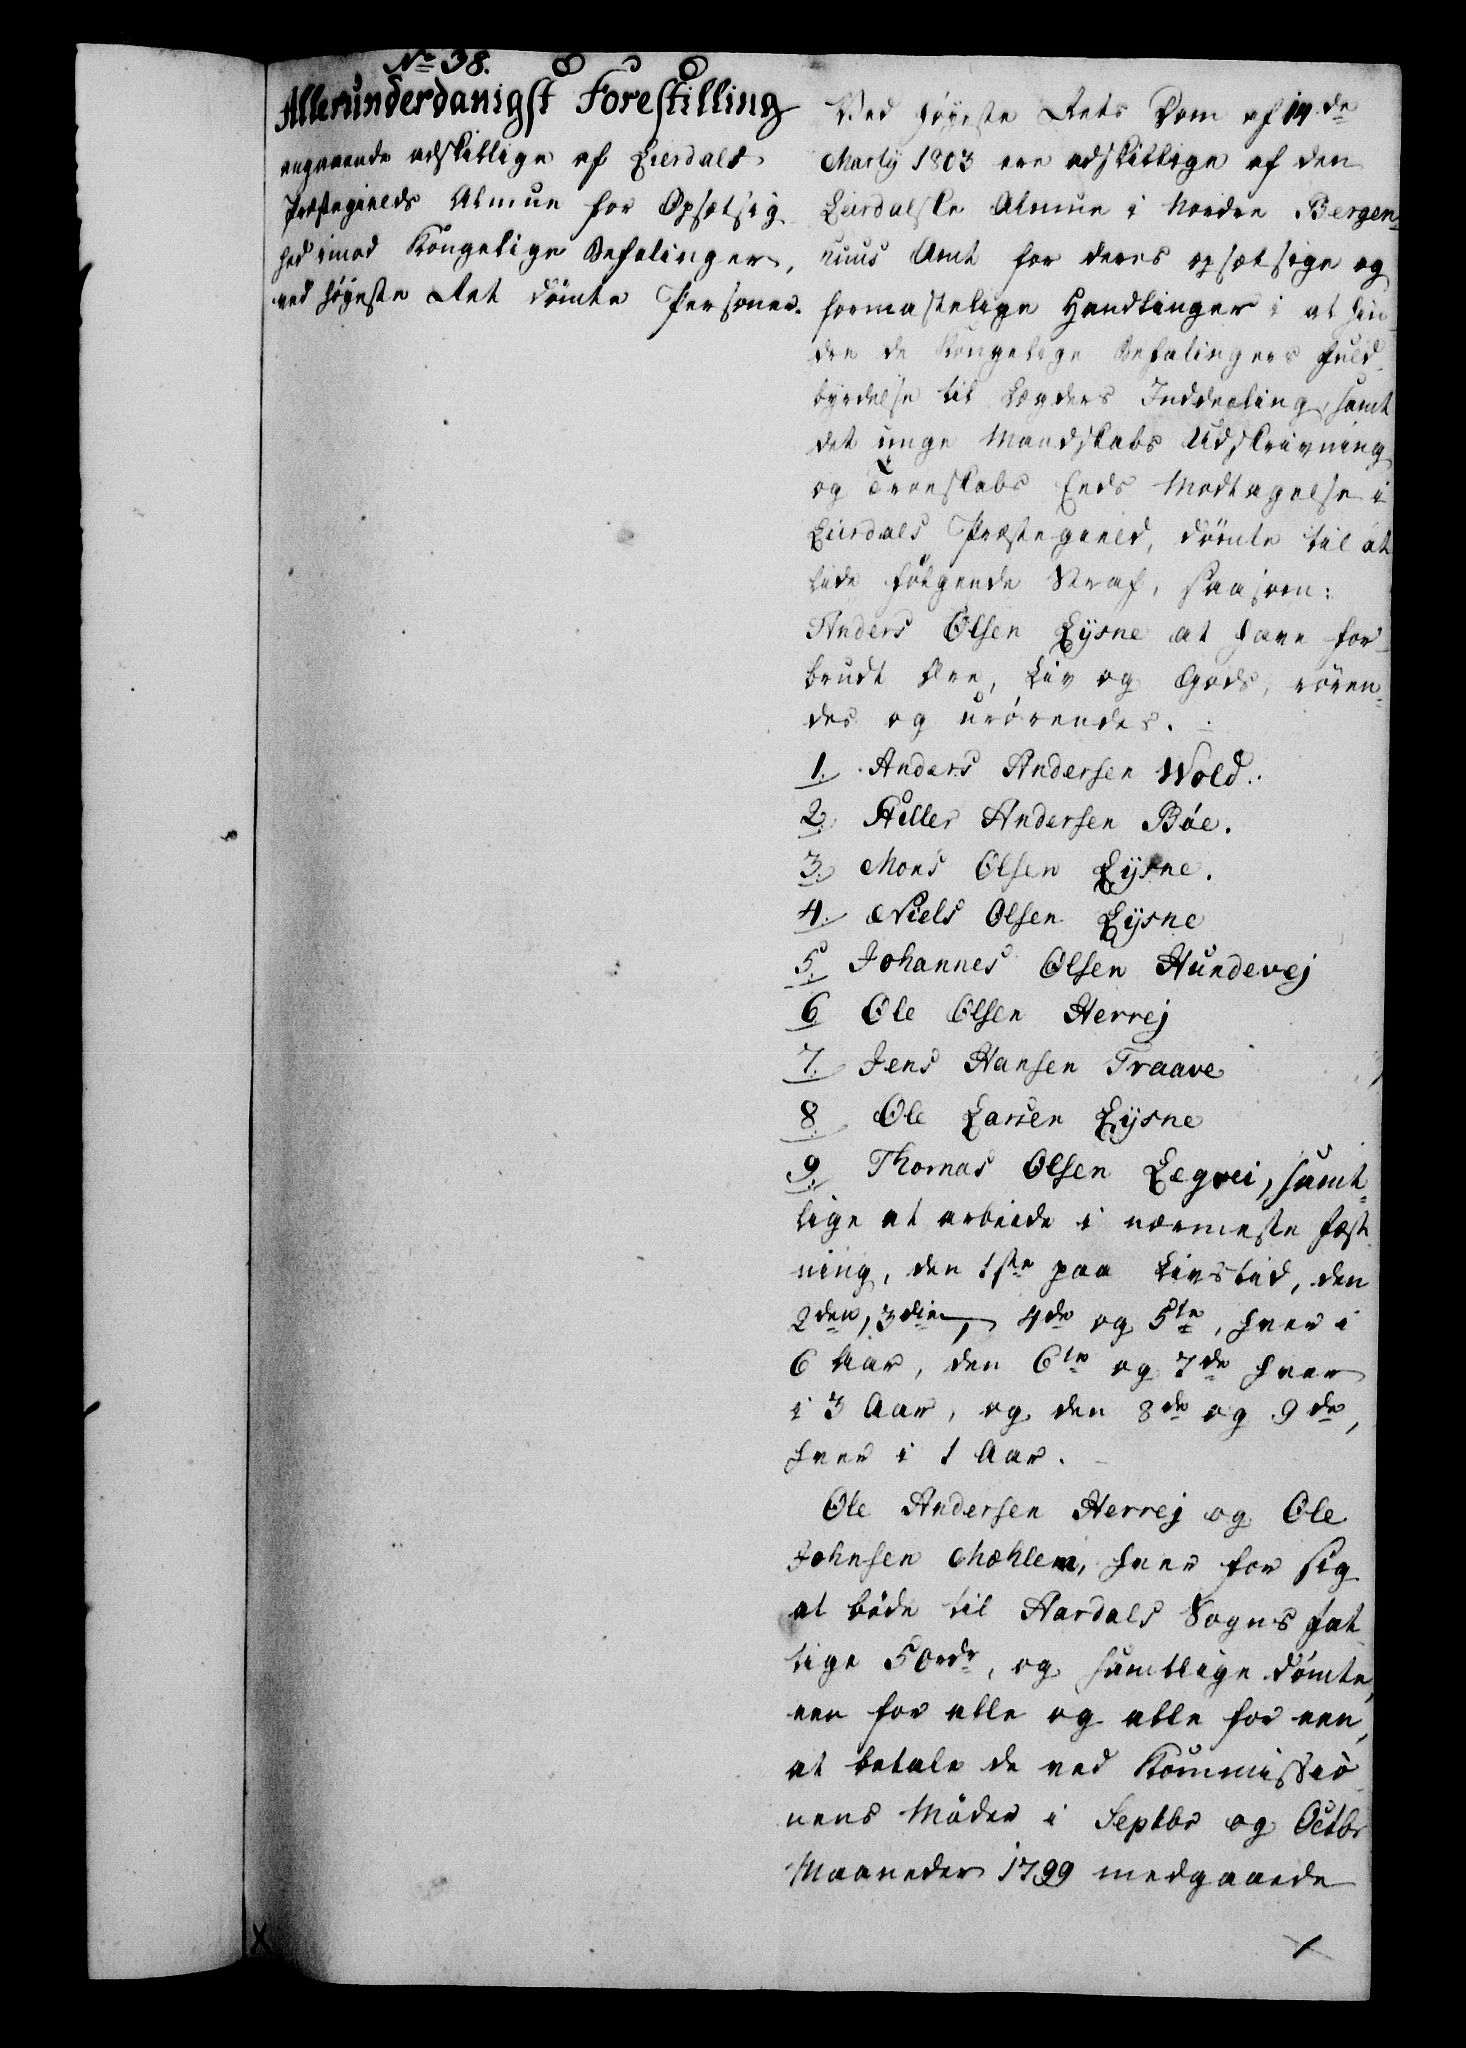 No 38.
Allerunderdanigst Forestilling
angaaende adskillige af Leerdals
Præstegields Almue for Opsætsig
hed imod Kongelige Befalinger,
ved Høyeste Ret dömte Personer.
Ved Høyeste Rets Dom af 14de
Martij 1803 ere adskillige af den
Leirdalske Almue i Nordre Bergen-
huus Amt for deres opsætsige og
formastelige Handlinger i at hin-
dre de Kongelige Befalingers Fuld-
byrdelse til Lægders Inddeeling, samt
det unge Mandskabs Udskrivning
og Troeskabs Eeds Modtagelse i
Leirdals Præstegield, dömte til at
lide fölgende Straf, saasom:
Anders Olsen Lysne at have for-
brudt Ære, Liv og Gods, rören-
des og urörendes.
1. Anders Andersen Wold.
2. Hiller Andersen Böe.
3. Mons Olsen Lysne.
4. Niels Olsen Lysne
5. Johannes Olsen Hundevej
6 Ole Olsen Herrej
7. Jens Hansen Traave
8. Ole Larsen Lysne
9. Thomas Olsen Legrei, samt-
lige at arbeide i nærmeste Fæst-
ning, den 1ste paa Livstid, den
2den, 3die, 4de og 5te, hver i
6 Aar, den 6te og 7de hver
i 3 Aar, og den 8de og 9de,
hver i 1 Aar.
Ole Andersen Herrej og Ole
Johnsen Mæhlem, hver for sig
at böde til Aardals Sogns Fat-
tige 50rdr, og samtlige dömte,
een for alle og alle for een,
at betale de ved Kommissio-
nens Möder i Septbr og Octbr
Maaneder 1799 medgaaede